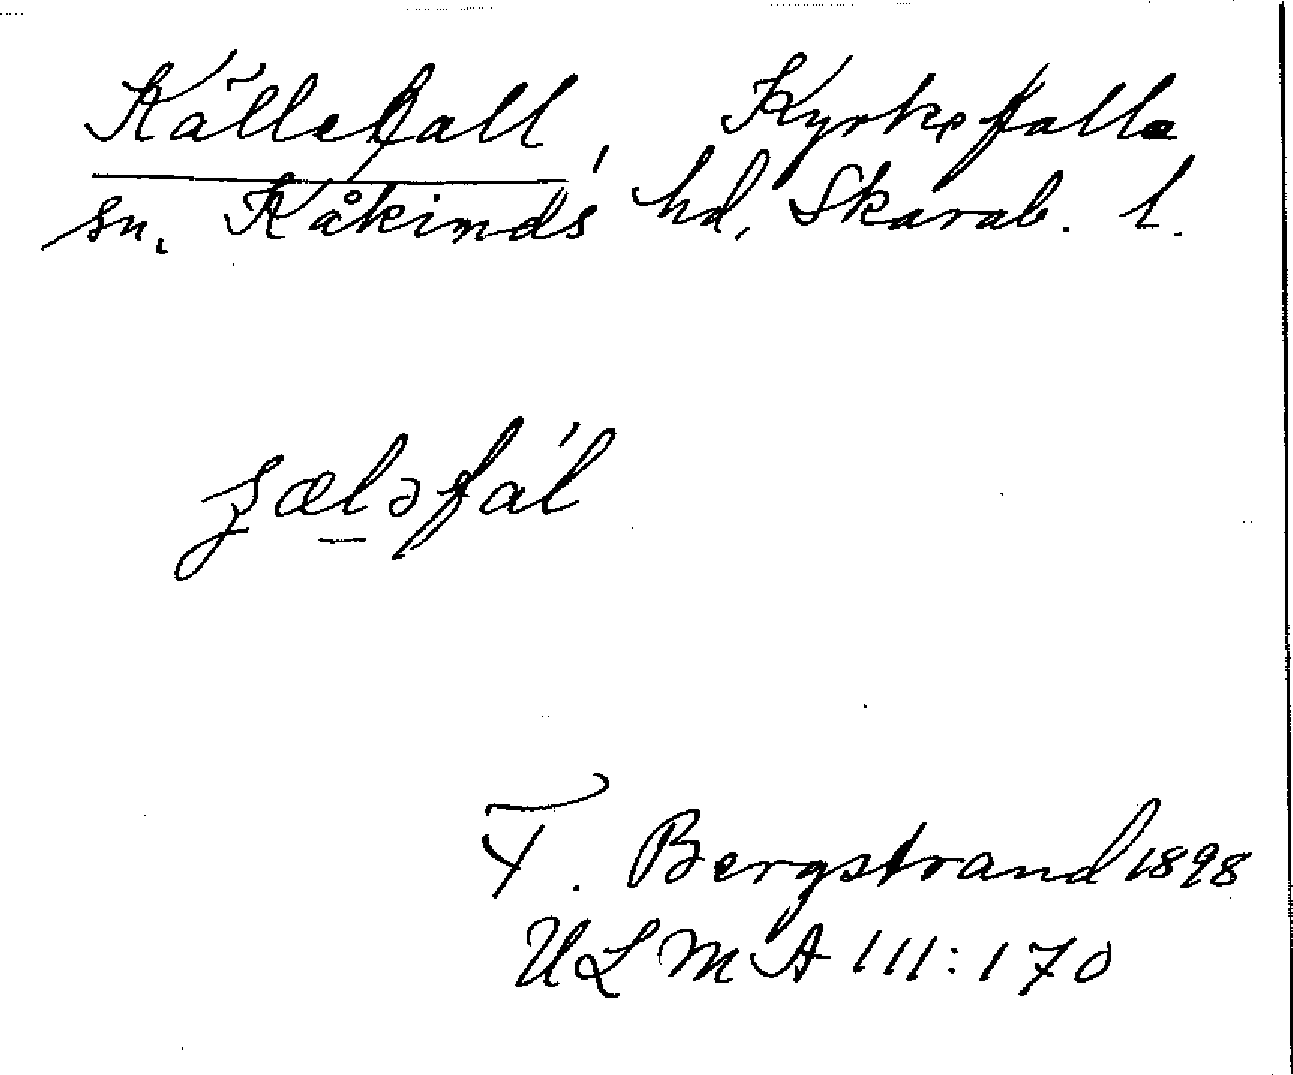 Källefall, Kyrkefalla
sn. Kåkinds hd, Skarab. l.
ʂæləfál
T. Bergstrand 1898
ULMA 111:170